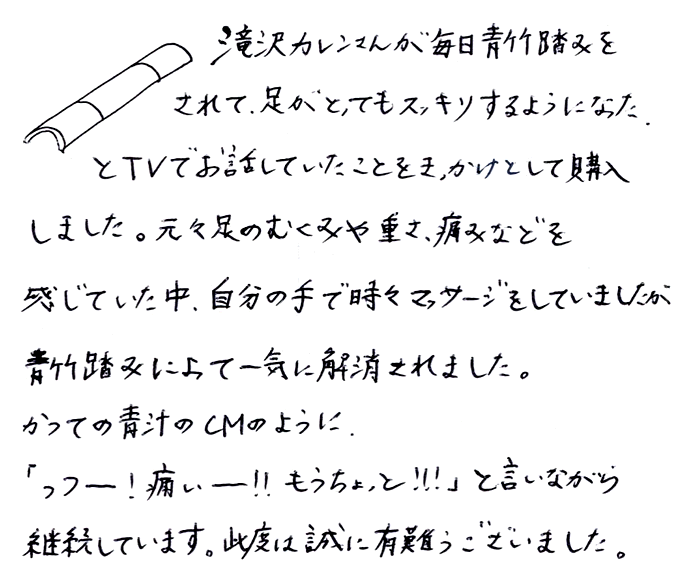 滝沢カレンさんが毎日青竹踏みを
されて、足がとってもスッキリするようになった、
とTVでお話していたことをきっかけとして購入
しました。元々足のむくみや重さ、痛みなどを
感じていた中、自分の手で時々マッサージをしていましたが
青竹踏みによって一気に解消されました。
かつての青汁のCMのように、
「っフー！痛いー!!もうちょっと!!!」と言いながら
継続しています。此度は誠に有難うございました。